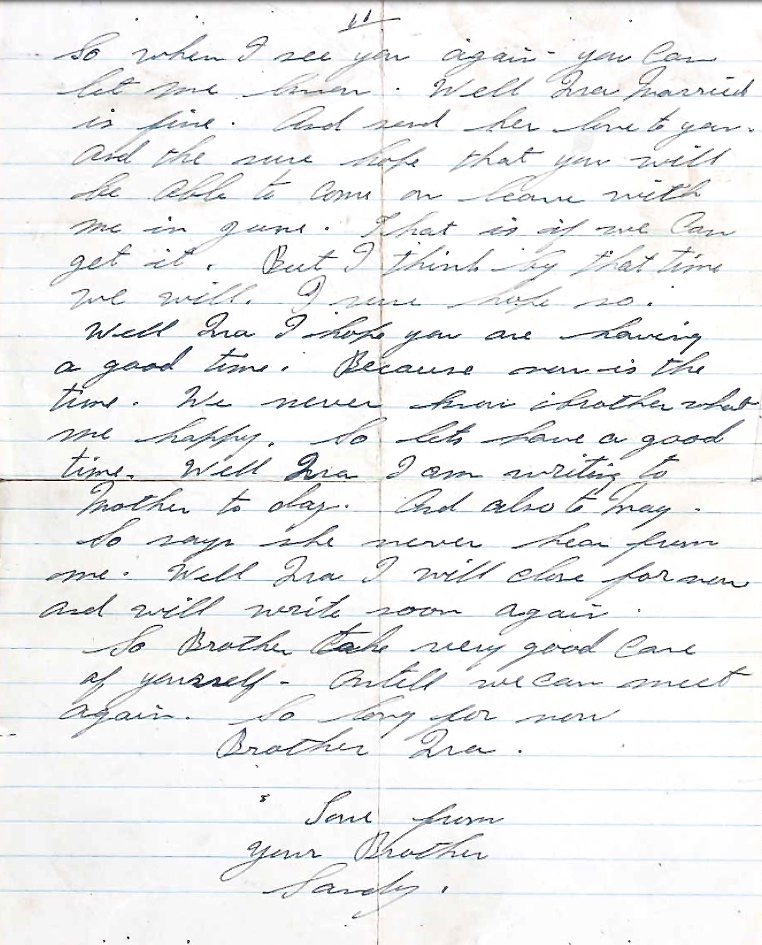 11
So when I see you again - you Can
let me know. Well Ira Married
is fine. And send her love to you.
And the sure hope that you will
be able to come on leave with
me in June. That is if we Can
get it. But I think by that time
we will. I sure hope so.
Well Ira I hope you are having
a good time. Because now is the
time. We never know brother what
me happy. So lets have a good
time. Well Ira I am writing to
Mother to day. And also to May.
So says she never hear from
me. Well Ira I will close for now
and will write soon again.
So Brother take very good Care
of yourself - ontell we can meet
again. So long for now
Brother Ira.
Love from
your Brother
Sandy.